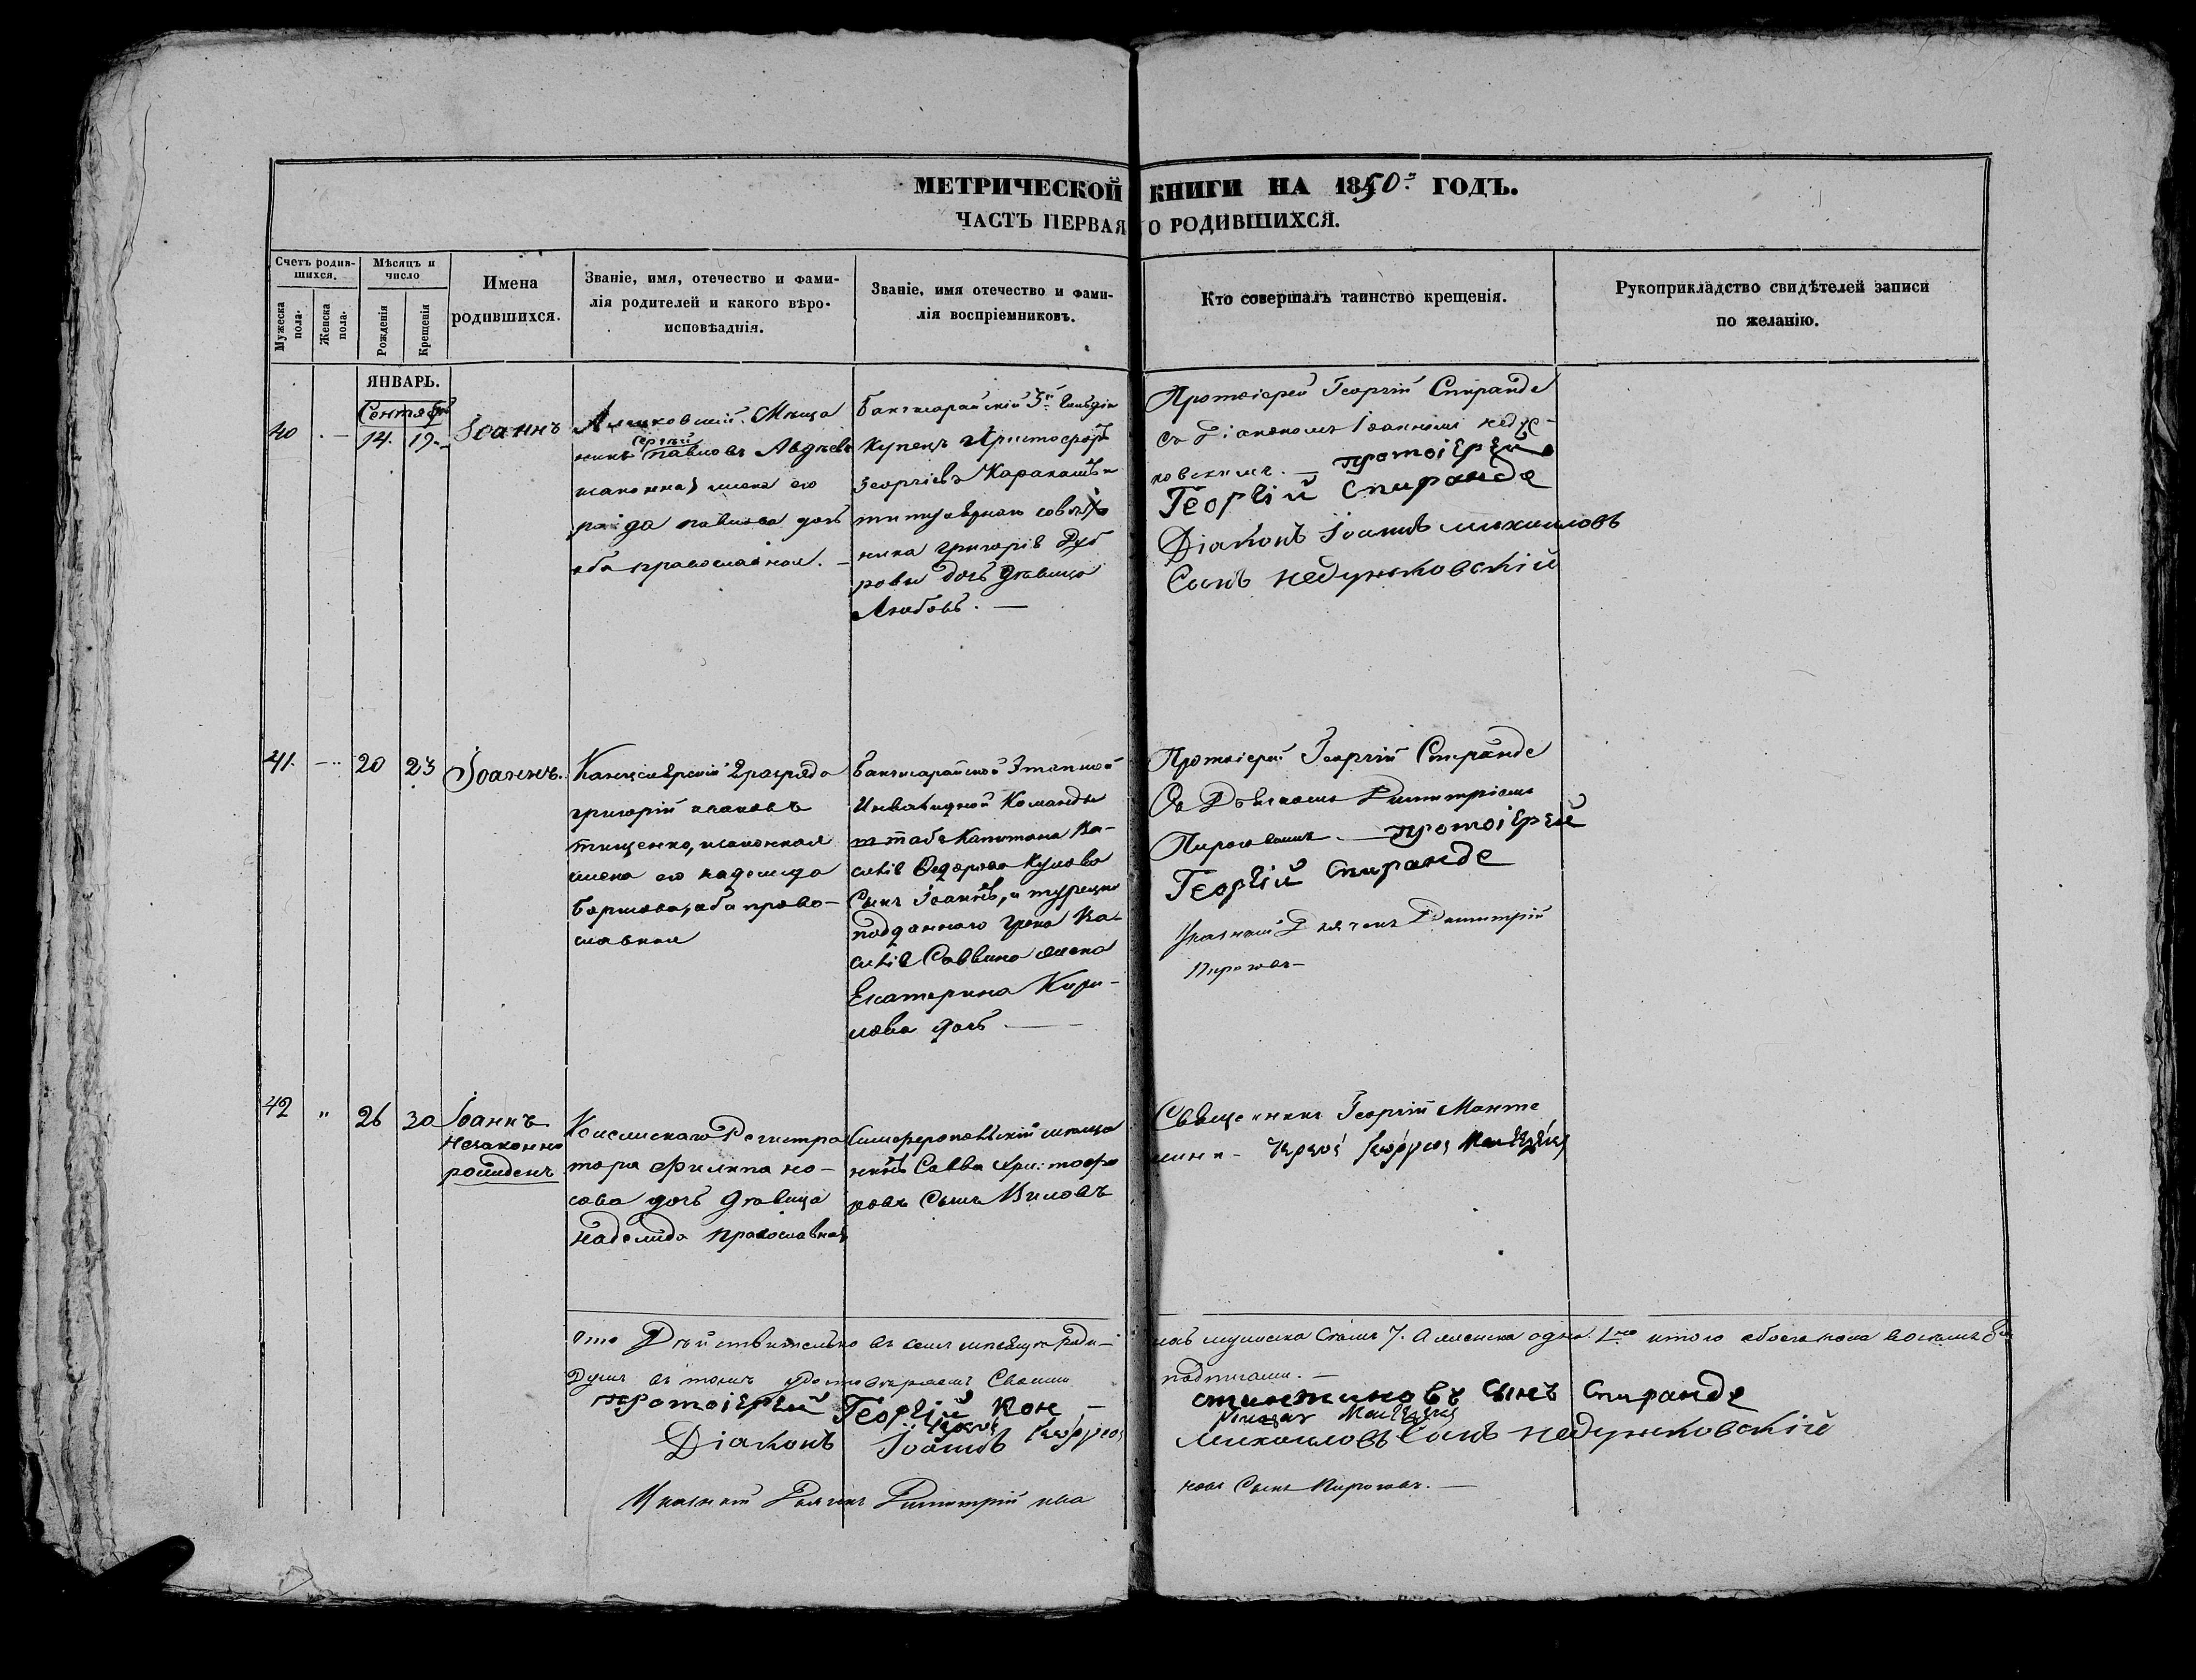 МЕТРИЧЕСКОЙ КНИГИ НА 1850 ГОДЪ.
ЧАСТЬ ПЕРВАЯ О РОДИВШИХСЯ.
Счетъ родившихся.
Мужеска пола.
Женска пола.
Мѣсяцъ и число
Рожденія
Крещенія
Имена родившихся.
Званіе, имя, отечество и фамилія родителей и какого вѣроисповѣаднія.
Званіе, имя отечество и фамилія воспріемниковъ.
Кто совершалъ таинство крещенія.
Рукоприкладство свидѣтелей записи по желанію.
ЯНВАРЬ.
Сентябрь
40
14. 19.
Іоаннъ
Алешковскій Мѣща
нинъ Сергѣй Павловъ Авдѣевъ
законная жена его
павлова дочь
оба православные.
Бахчисарайскій 3й Гильдіи
Купецъ Христофоръ
Георгіевъ Каракашъ и
титулярнаго совѣт
ника Григорія Дуб
ровы дочь Дѣвица
Любовь.
Протоіерей Георгій Спиранде
съ Діакономъ Іоанномъ Недуж-
ковскимъ. — протоіерей
Георгій Спиранде
Діаконъ Іоаннъ Михаиловъ
Сынъ Недужковскій
41.
20
23
Іоаннъ.
Канцелярскій 2 разряда
Григорій
Тищенко, законная
жена его Надежда
оба право-
славные
Бахчисарайской Этапной
Инвалидной Команды
штабс Капитана Ва-
силія Ѳедорова
Сынъ Іоаннъ, и турецко
подданнаго грека Ва-
силія Саввина жена
Екатерина Кири-
лова дочь
Протоіерей Георгій Спиранде
Съ Дьячкомъ Димитріемъ
Пироговымъ. — протоіерей
Георгій Спиранде
Указный Дьячекъ Димитрій
Пироговъ
42
"
26
30
Іоаннъ
незаконно
рожденъ
Колежскаго Регистра
тора Филипа Но-
сова дочь Дѣвица
Надежда православная
Симферопольскій мѣща
нинъ Савва Христофо
ровъ Сынъ
Священникъ Георгій Манте
Что Дѣйствительно въ семъ мѣсяцѣ роди-
лось мужеска пола 7. а женска одна. 1 итого обоего пола восемь 8
Душъ въ томъ удостовѣряемъ Своими
подписями. —
протоіерей Георгій Кон-
стантиновъ Сынъ Спиранде
Діаконъ Іоаннъ
Михаиловъ Сынъ Недужковскій
Указный Дьячекъ Димитрій Ива
новъ Сынъ Пироговъ. —